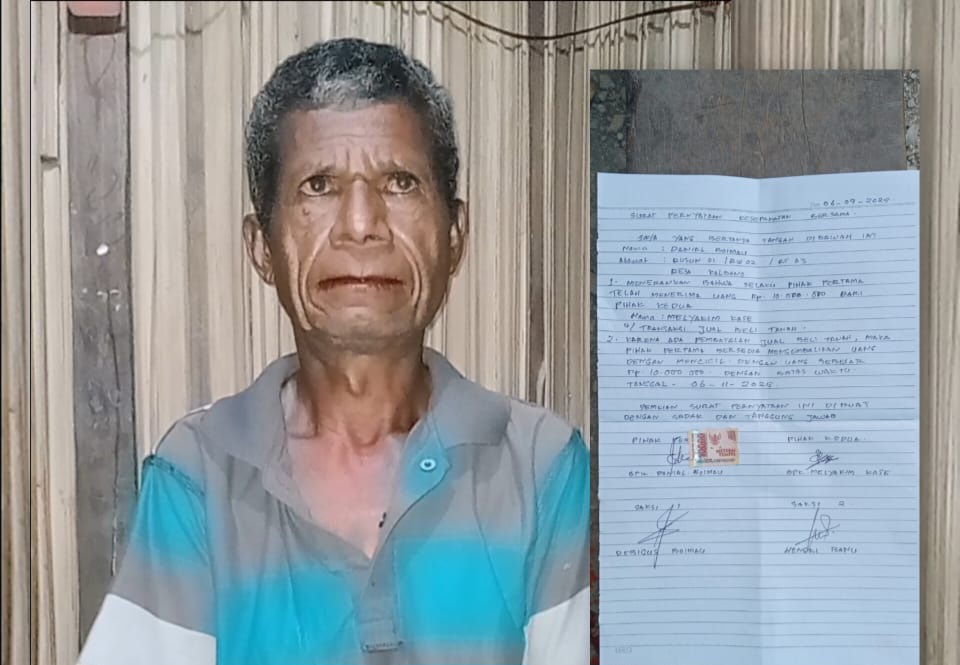 06-09-2025
SURAT PERNYATAAN KESEPAKATAN BERSAMA.
SAYA YANG BERTANDA TANGAN DIBAWAH INI
Nama : DANIAL BOIMAU
Alamat : DUSUN 01 / RW 02 / RT 03
DESA
1. MENERANKAN BAHWA SELAKU PIHAK PERTAMA
TELAH MENERIMA UANG Rp. 10.000.000 DARI
PIHAK KEDUA
Nama : MELYAKIM KASE
U/ TRANSAKSI JUAL BELI TANAH.
2. KARENA ADA PEMBATALAN JUAL BELI TANAH, MAKA
PIHAK PERTAMA BERSEDIA MENGEMBALIKAN UANG
DENGAN MENCICIL DENGAN UANG SEBESAR
Rp. 10.000.000. DENGAN BATAS WAKTU
TANGGAL - 06-11-2025
DEMIKIAN SURAT PERNYATAAN INI DI BUAT
DENGAN SADAR DAN TANGGUNG JAWAB
PIHAK PIHAK KEDUA
BPK DANIAL BOIMAU BPK MELYAKIM KASE
SAKSI 1 SAKSI 2
BOIMAU